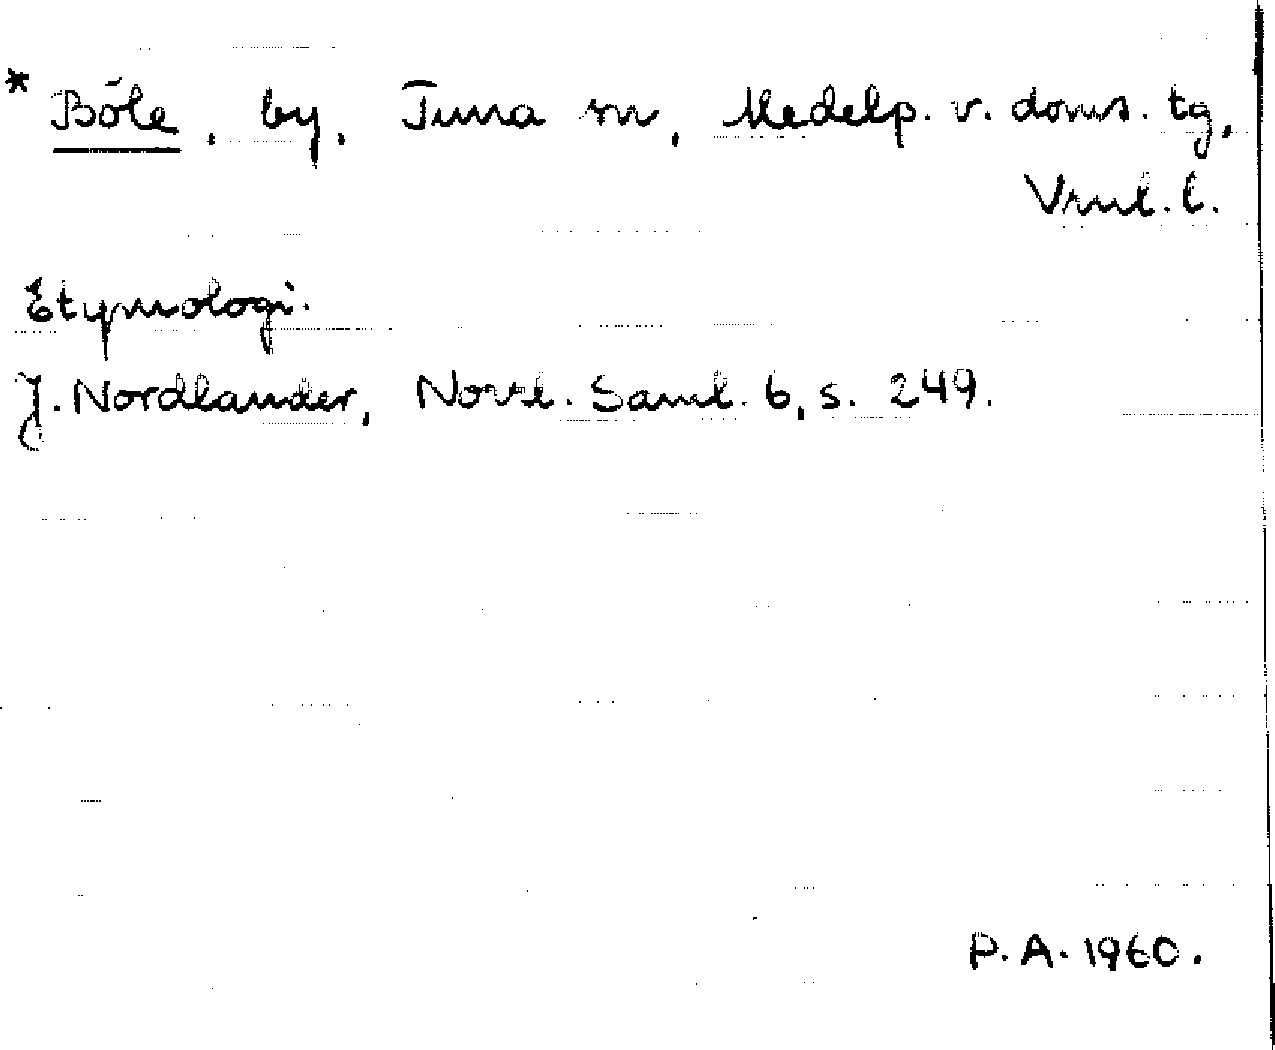 * Böle, by, Tuna sn, Medelp. v. doms. tg,
Vnrl. l.
Etymologi.
J. Nordlander, Norrl. Saml. 6, s. 249.
P. A. 1960.